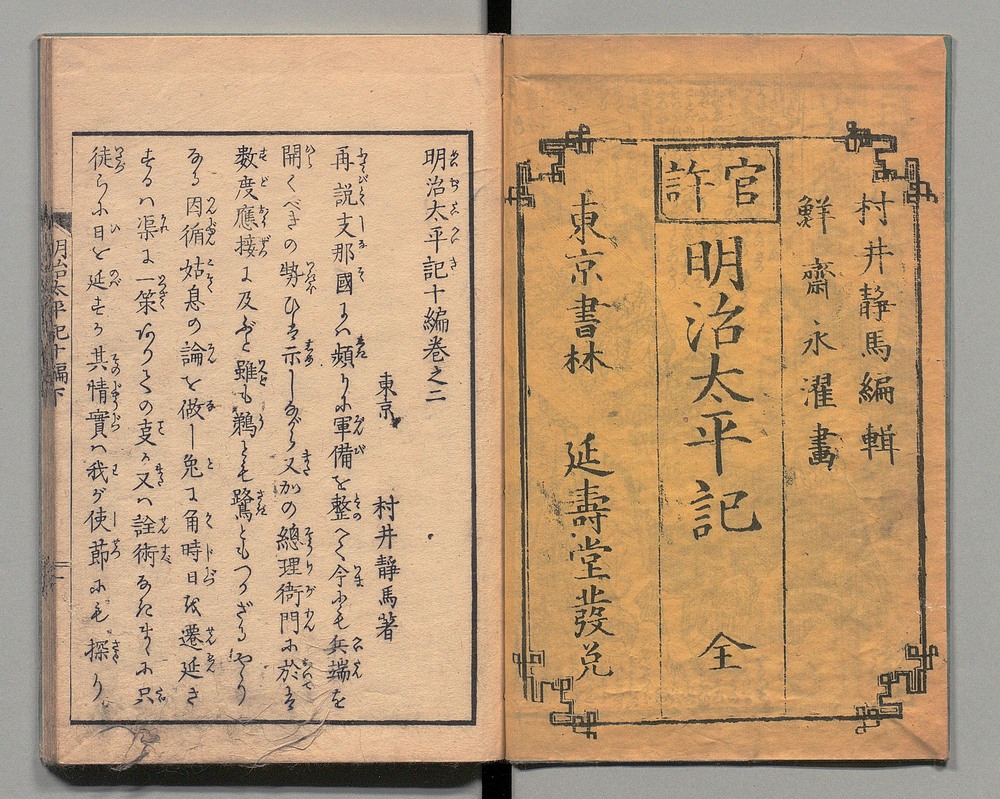 村井靜馬編輯
鮮齋永濯畫
官許
明治太平記 全
東京書林 延壽堂發兌
明治太平記十編巻之二
東京 村井靜馬著
再説支那國にハ頻りに軍備を整へて今にも兵端を
開くべきの勢ひを示しながら又かの總理衙門に於て
数度應接に及ぶと雖も鵜とも鷺ともつかざるやうな
る因循姑息の論を做し兎に角時日を遷延さ
するハ渠に一策ありての支か又ハ詮術なきまゝに只
徒らに日を延すか其情實ハ我が使節にも探り
明治太平記十編下